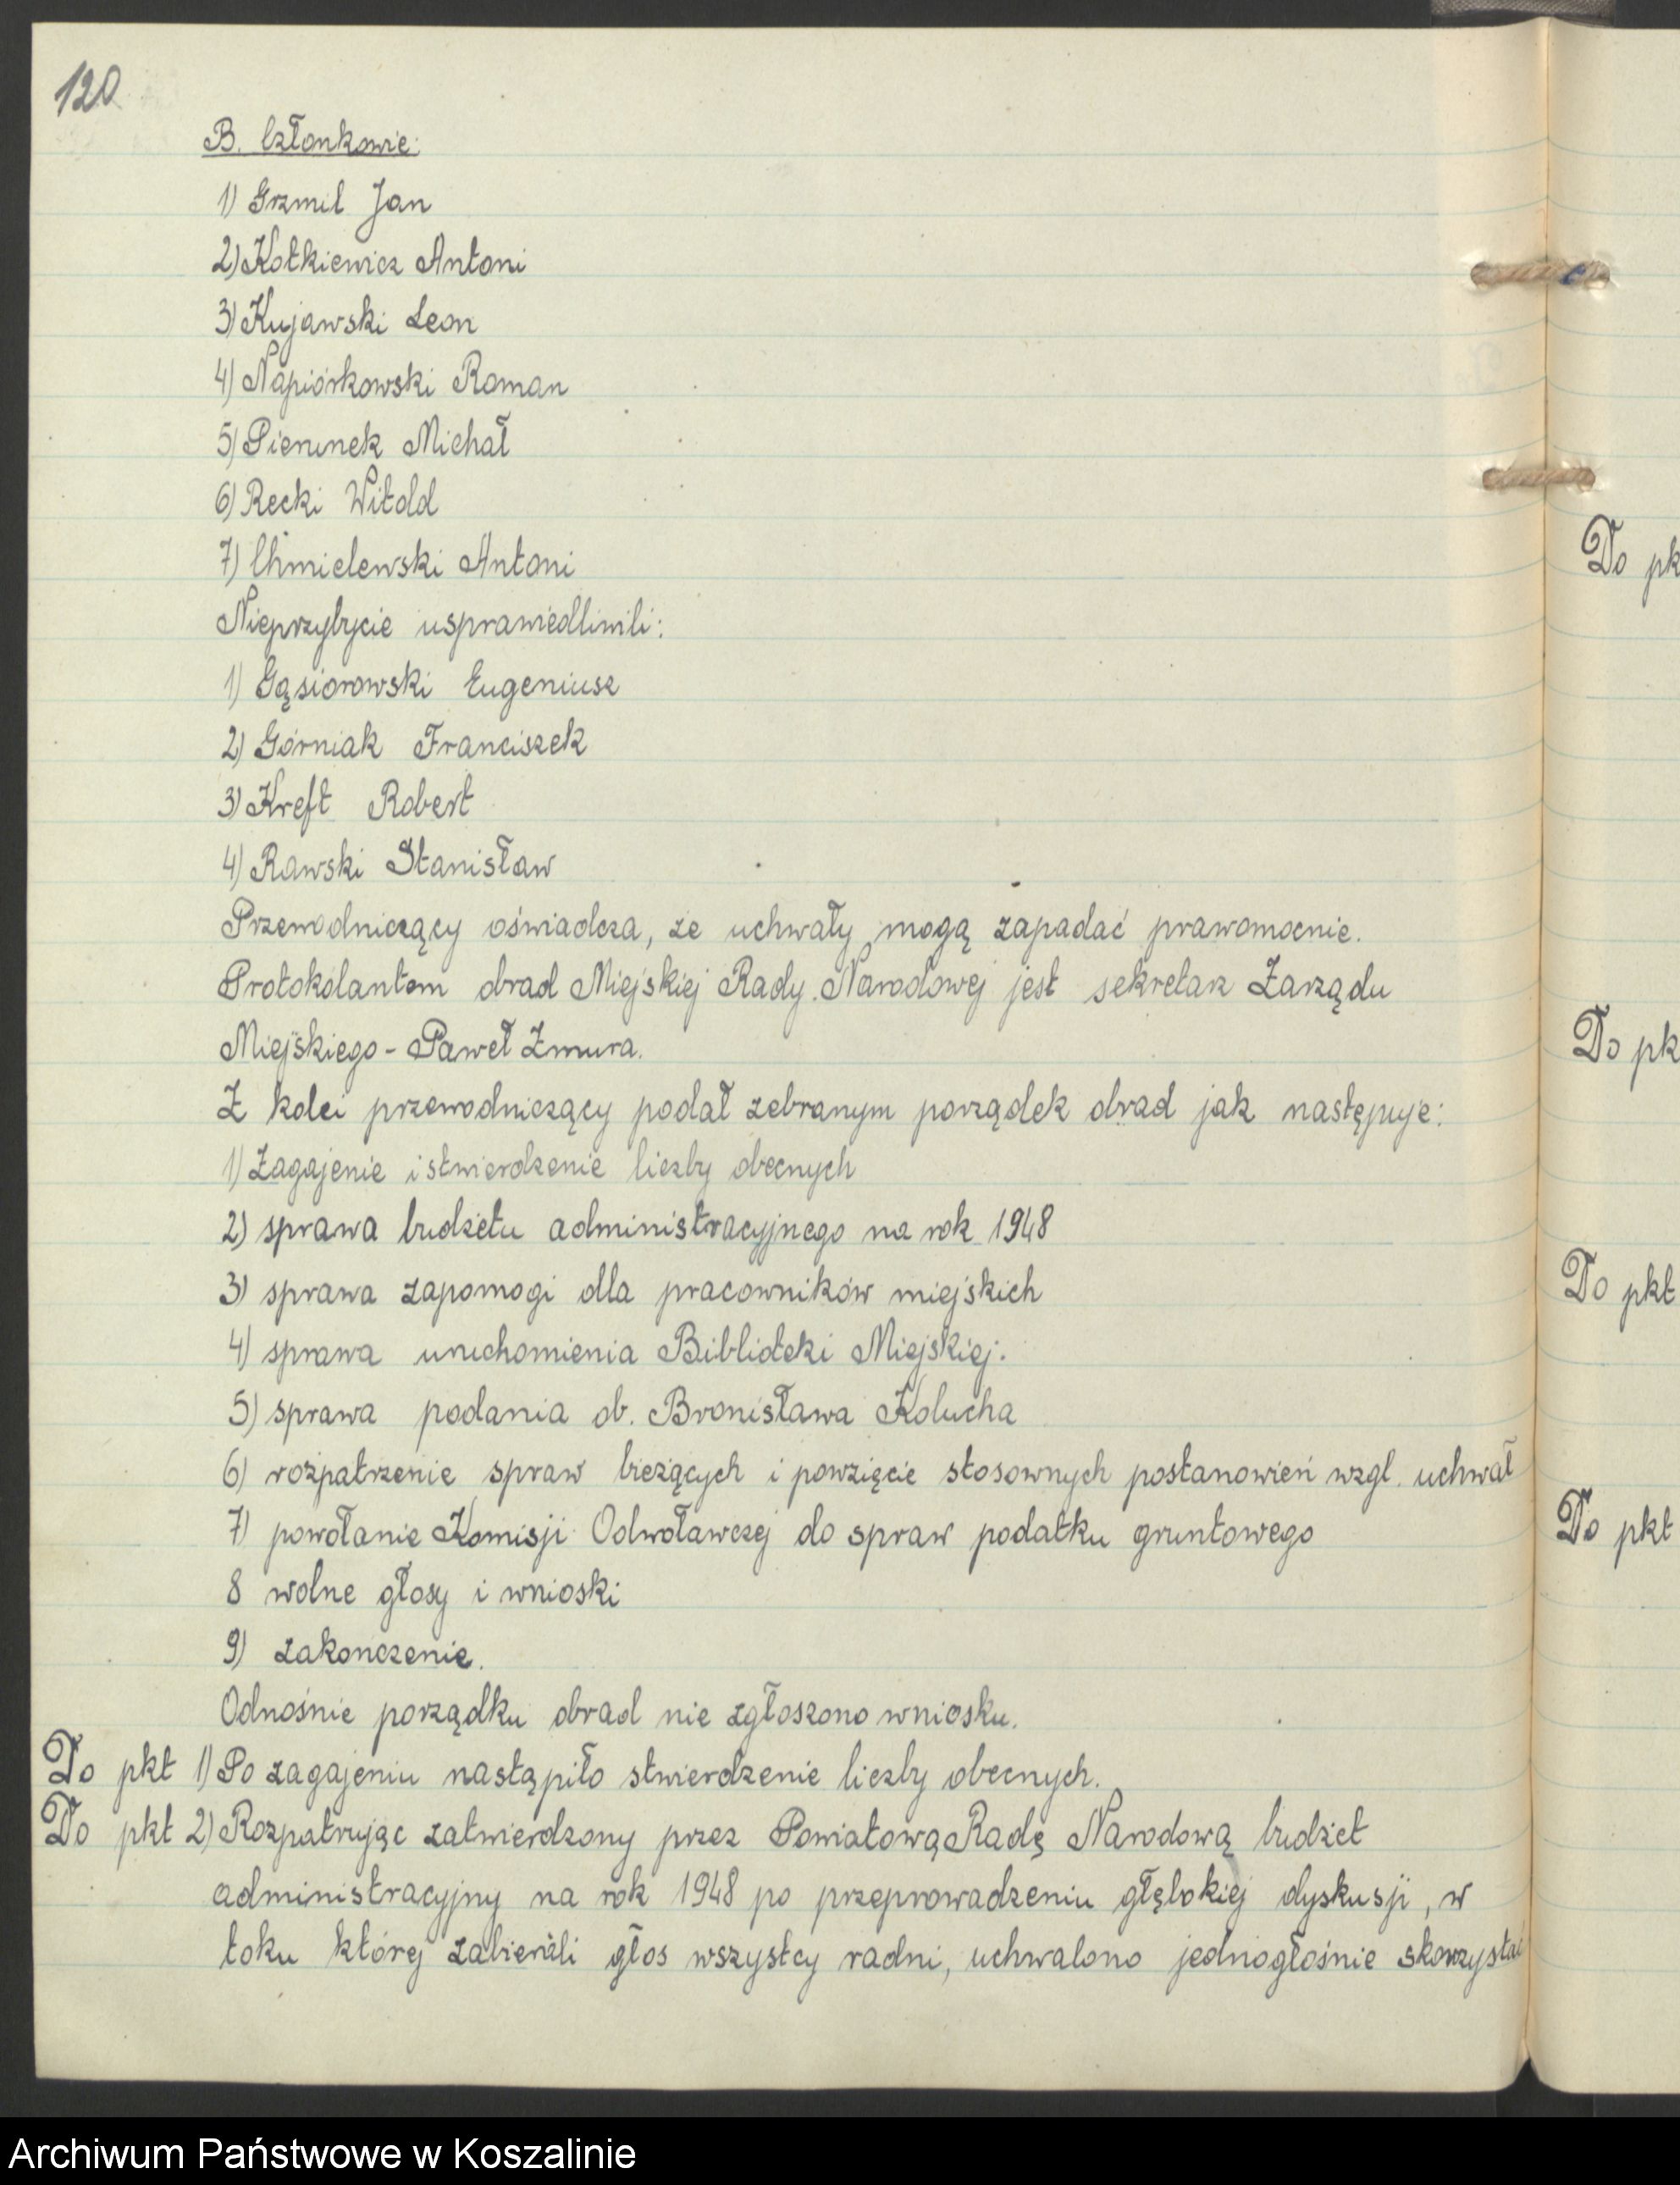 120
B. Członkowie:
1) Grzmil Jan
2) Kotkiewicz Antoni
3) Kujawski Leon
4) Napiórkowski Roman
5) Pierunek Michał
6) Recki Witold
7) Chmielewski Antoni
Nieprzybycie usprawiedliwili:
1) Gąsiorowski Eugeniusz
2) Górniak Franciszek
3) Kreft Robert
4) Rawski Stanisław
Przewodniczący oświadcza, że uchwały mogą zapadać prawomocnie.
Protokolantem obrad Miejskiej Rady Narodowej jest sekretarz Zarządu
Miejskiego - Paweł Żmura.
Z kolei przewodniczący podał zebranym porządek obrad jak następuje:
1) Zagajenie i stwierdzenie liczby obecnych
2) sprawa budżetu administracyjnego na rok 1948
3) sprawa zapomogi dla pracowników miejskich
4) sprawa uruchomienia Biblioteki Miejskiej.
5) sprawa podania ob. Bronisława Kolucha
6) rozpatrzenie spraw bieżących i powzięcie stosownych postanowień wzgl. uchwał
7) powołanie Komisji Odwoławczej do spraw podatku gruntowego
8 wolne głosy i wnioski
9) zakończenie.
Odnośnie porządku obrad nie zgłoszono wniosku.
Do pkt 1) Po zagajeniu nastąpiło stwierdzenie liczby obecnych.
Do pkt 2) Rozpatrując zatwierdzony przez Powiatową Radę Narodową budżet
administracyjny na rok 1948 po przeprowadzeniu głębokiej dyskusji, w
toku której zabierali głos wszyscy radni, uchwalono jednogłośnie skorzystać
Do pk
Do pk
Do pkt
Do pkt
Archiwum Państwowe w Koszalinie